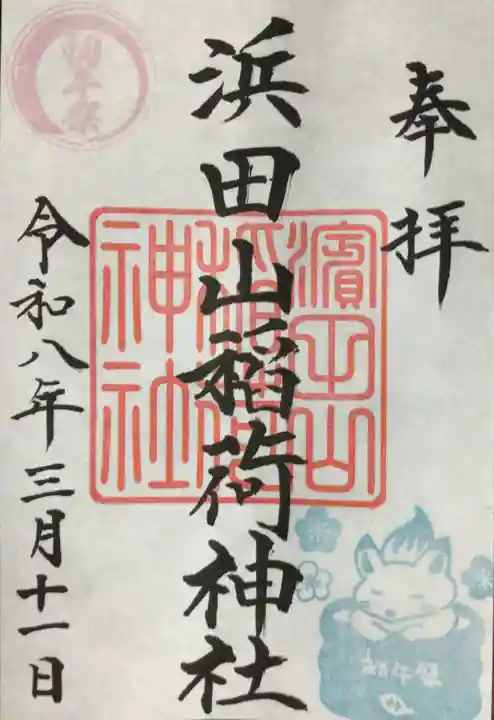 奉拝
浜田山稲荷神社
令和八年三月十一日
濱田山
稲荷
神社
初午祭
初午祭